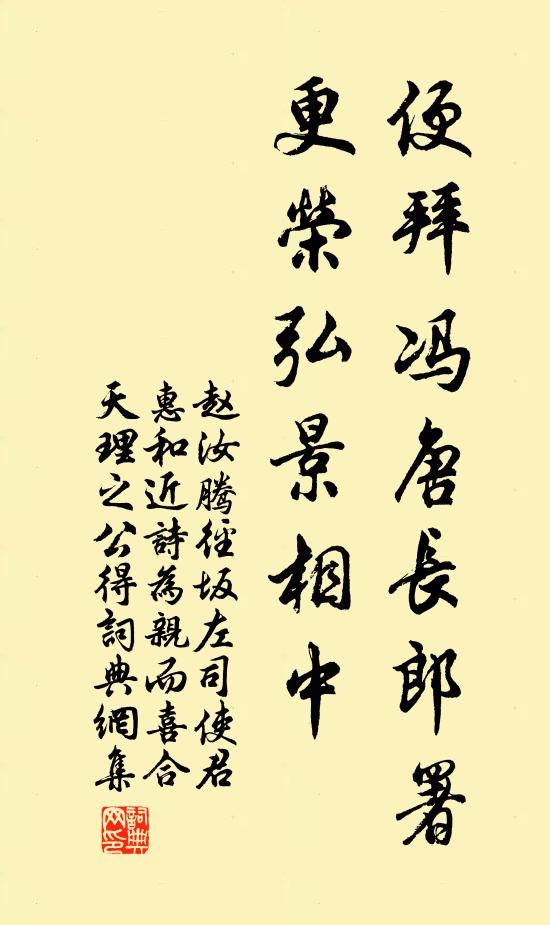 便拜冯唐長郎署
更榮弘景相中
赵汝騰徑坂左司使君
惠和近詩為親而喜合
天理之公得詞典網集
詞典网印